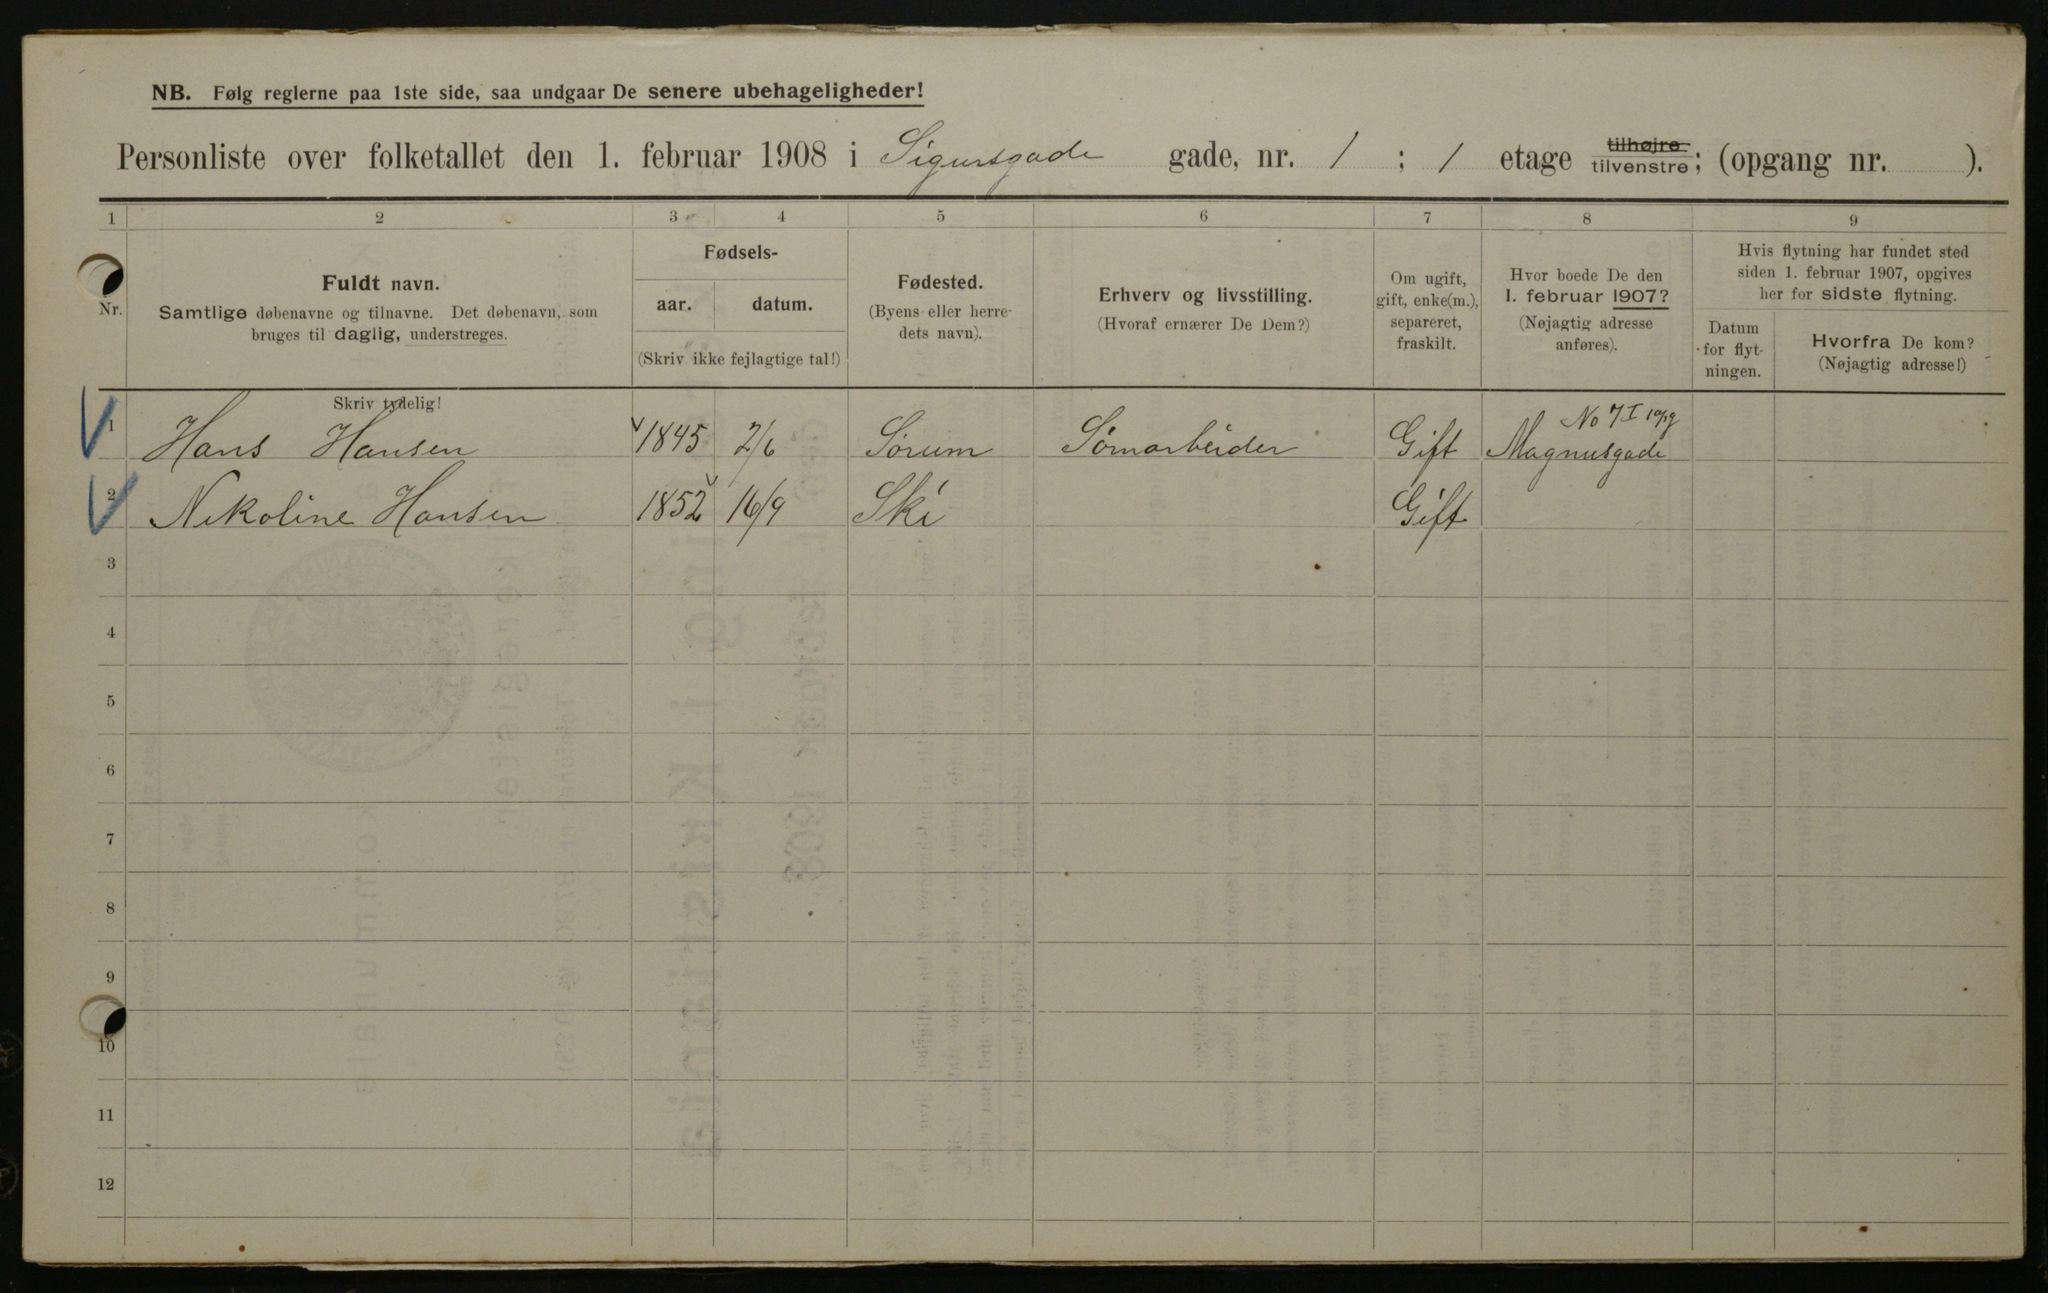 NB. Følg reglerne paa 1ste side, saa undgaar De senere ubehageligheder!
Personliste over folketallet den 1. februar 1908 i Sigursgade gade, nr. 1 ; 1 etage tilhøjre tilvenstre; (opgang nr. ).
1 2 3 4 5 6 7 8 9
Nr.
Fuldt navn.
Samtlige døbenavne og tilnavne. Det døbenavn, som
bruges til daglig, understreges.
Skriv tydelig!
Fødsels-
aar. datum.
(Skriv ikke fejlagtige tal!)
Fødested.
(Byens eller herre-
dets navn).
Erhverv og livsstilling.
(Hvoraf ernærer De Dem?)
Om ugift,
gift, enke(m.),
separeret,
fraskilt.
Hvor boede De den
1. februar 1907?
(Nøjagtig adresse
anføres).
Hvis flytning har fundet sted
siden 1. februar 1907, opgives
her for sidste flytning.
Datum
for flyt-
ningen.
Hvorfra De kom?
(Nøjagtig adresse!)
No 7 I
1 Hans Hansen 1845 2/6 Sørum Sömarbeider Gift Magnusgade
2 Nikoline Hansen 1852 16/9 Ski Gift
3
4
5
6
7
8
9
10
11
12